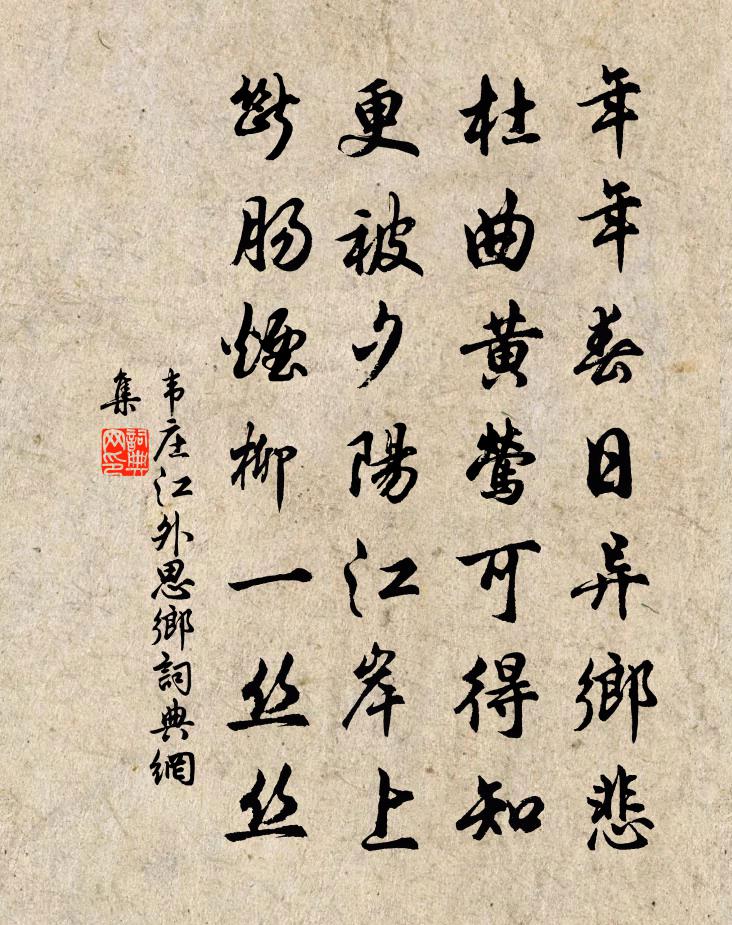 年年春日异鄉悲
杜曲黄鶯可得知
更被夕陽江岸上
斷肠煙柳一丝丝
韦庄江外思鄉詞典網
集
詞典網印